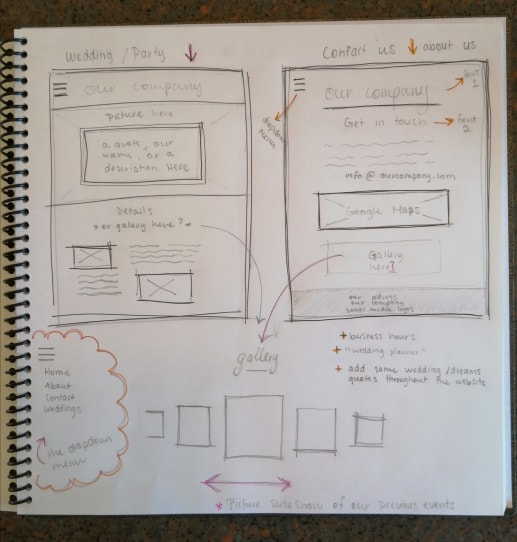 Wedding / Party
our company
picture here
a quote, our
name, or a
description Here
Details
or gallery here ?
Contact us
about us
our company
font
1
dropdown
menu
Get in touch
font
2
info @ ourcompany.com
Google Maps
Gallery
here?
our adress
our company
social media logos
+ business hours
+ "wedding planner"
+ add some wedding / dreams
quotes throughout the website
Home
About
Contact
Weddings
the dropdown
menu
gallery
* Picture slide show of our previous events